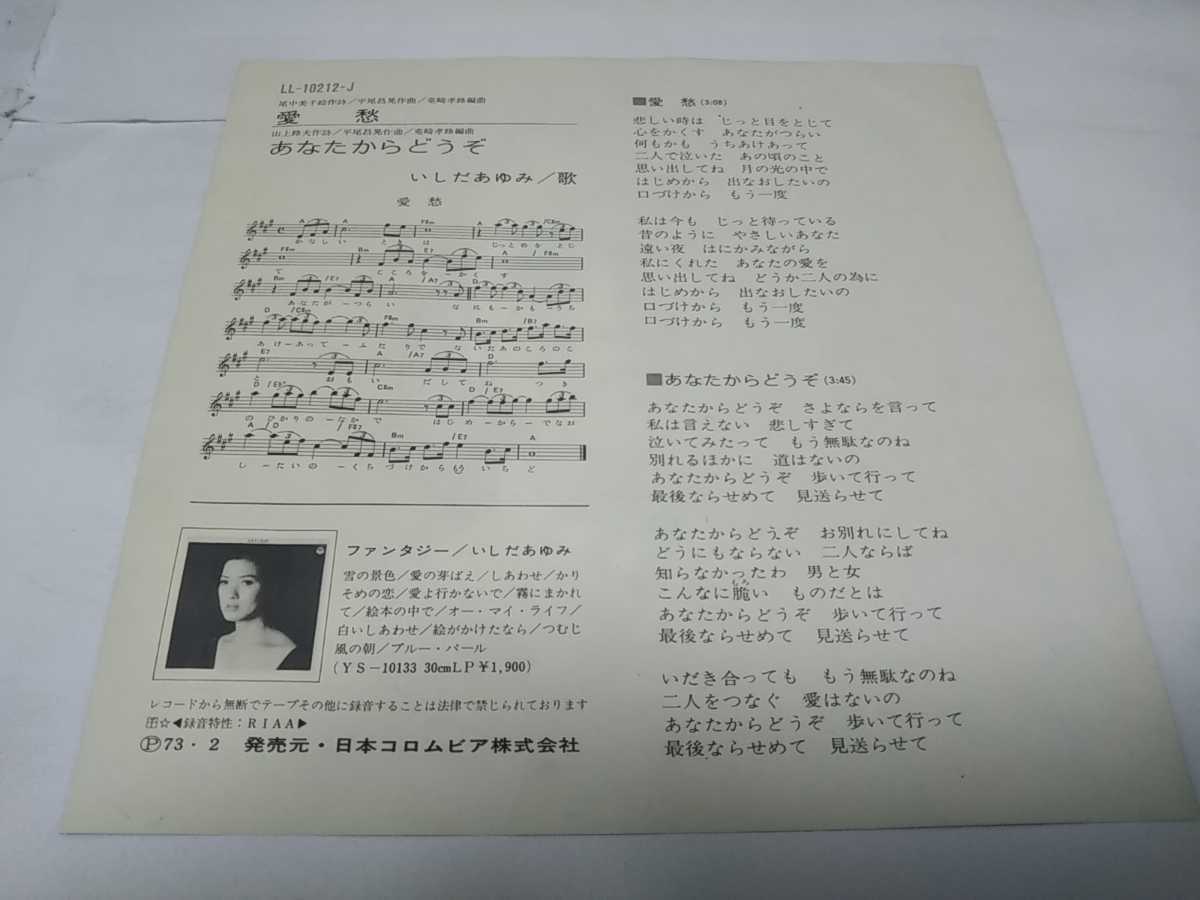 LL-10212-J
尾中美千絵作詩／平尾昌晃作曲／竜崎孝路編曲
愛 愁
山上路夫作詩／平尾昌晃作曲／竜崎孝路編曲
あなたからどうぞ
いしだあゆみ／歌
愛 愁
かなしい ときは じっとめをとじ
て こころを ー かくす
あなたが ー つらい なにも ー かも ー うち
あけ ー あって ー ふ たりで ないたあのころのこ
と おもい だしてね つき
のひかりの ー なかで はじめ ー から ー でなお
し ー たいの ー くちづけから もう いちど
ファンタジー／いしだあゆみ
雪の景色／愛の芽ばえ／しあわせ／かり
そめの恋／愛よ行かないで／霧にまかれ
て／絵本の中で／オー・マイ・ライフ／
白いしあわせ／絵がかけたなら／つむじ
風の朝／ブルー・パール
(YS−10133 30cmLP￥1,900)
レコードから無断でテープその他に録音することは法律で禁じられております
☆◀録音特性：RIAA▶
Ⓟ73・2 発売元・日本コロムビア株式会社
■愛 愁(3:08)
悲しい時は じっと目をとじて
心をかくす あなたがつらい
何もかも うちあけあって
二人で泣いた あの頃のこと
思い出してね 月の光の中で
はじめから 出なおしたいの
口づけから もう一度
私は今も じっと待っている
昔のように やさしいあなた
遠い夜 はにかみながら
私にくれた あなたの愛を
思い出してね どうか二人の為に
はじめから 出なおしたいの
口づけから もう一度
口づけから もう一度
■あなたからどうぞ(3:45)
あなたからどうぞ さよならを言って
私は言えない 悲しすぎて
泣いてみたって もう無駄なのね
別れるほかに 道はないの
あなたからどうぞ 歩いて行って
最後ならせめて 見送らせて
あなたからどうぞ お別れにしてね
どうにもならない 二人ならば
知らなかったわ 男と女
こんなに脆い ものだとは
あなたからどうぞ 歩いて行って
最後ならせめて 見送らせて
いだき合っても もう無駄なのね
二人をつなぐ 愛はないの
あなたからどうぞ 歩いて行って
最後ならせめて 見送らせて